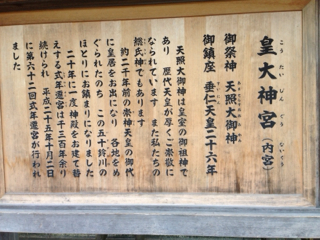 こうたいじんぐう ないくう
皇大神宮（内宮）
御祭神 天照大御神
御鎮座 垂仁天皇二十六年
天照大御神は皇室の御祖神で
あり 歴代天皇が厚くご崇敬に
なられています また私たちの
総氏神でもあります
約二千年前の崇神天皇の御代
に皇居をお出になり 各地をめ
ぐられたのち この五十鈴川の
ほとりにお鎮まりになりました
二十年に一度神殿をお建て替
えする式年遷宮は千三百年余り
続けられ 平成二十五年十月二日
に第六十二回式年遷宮が行われ
ました